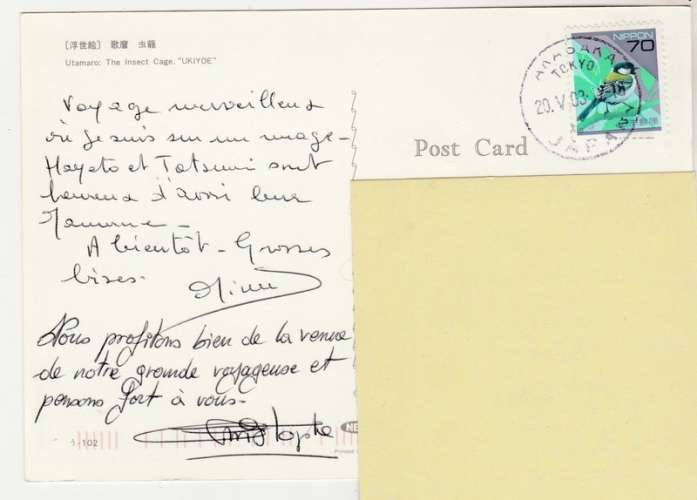 [浮世絵] 歌麿 虫籠
Utamaro: The Insect Cage. "UKIYOE"
Voyage merveilleux
où je suis sur un nuage -
Hayato et Tatsumi sont
heureux d'avoir leur
A bientôt - Grosses
bises -
Nous profitons bien de la venue
de notre grande voyageuse et
pensons fort à vous -
Christophe
102
NIPPON
70
AKASAKA
TOKYO
20. V. 03
JAPAN
Post Card